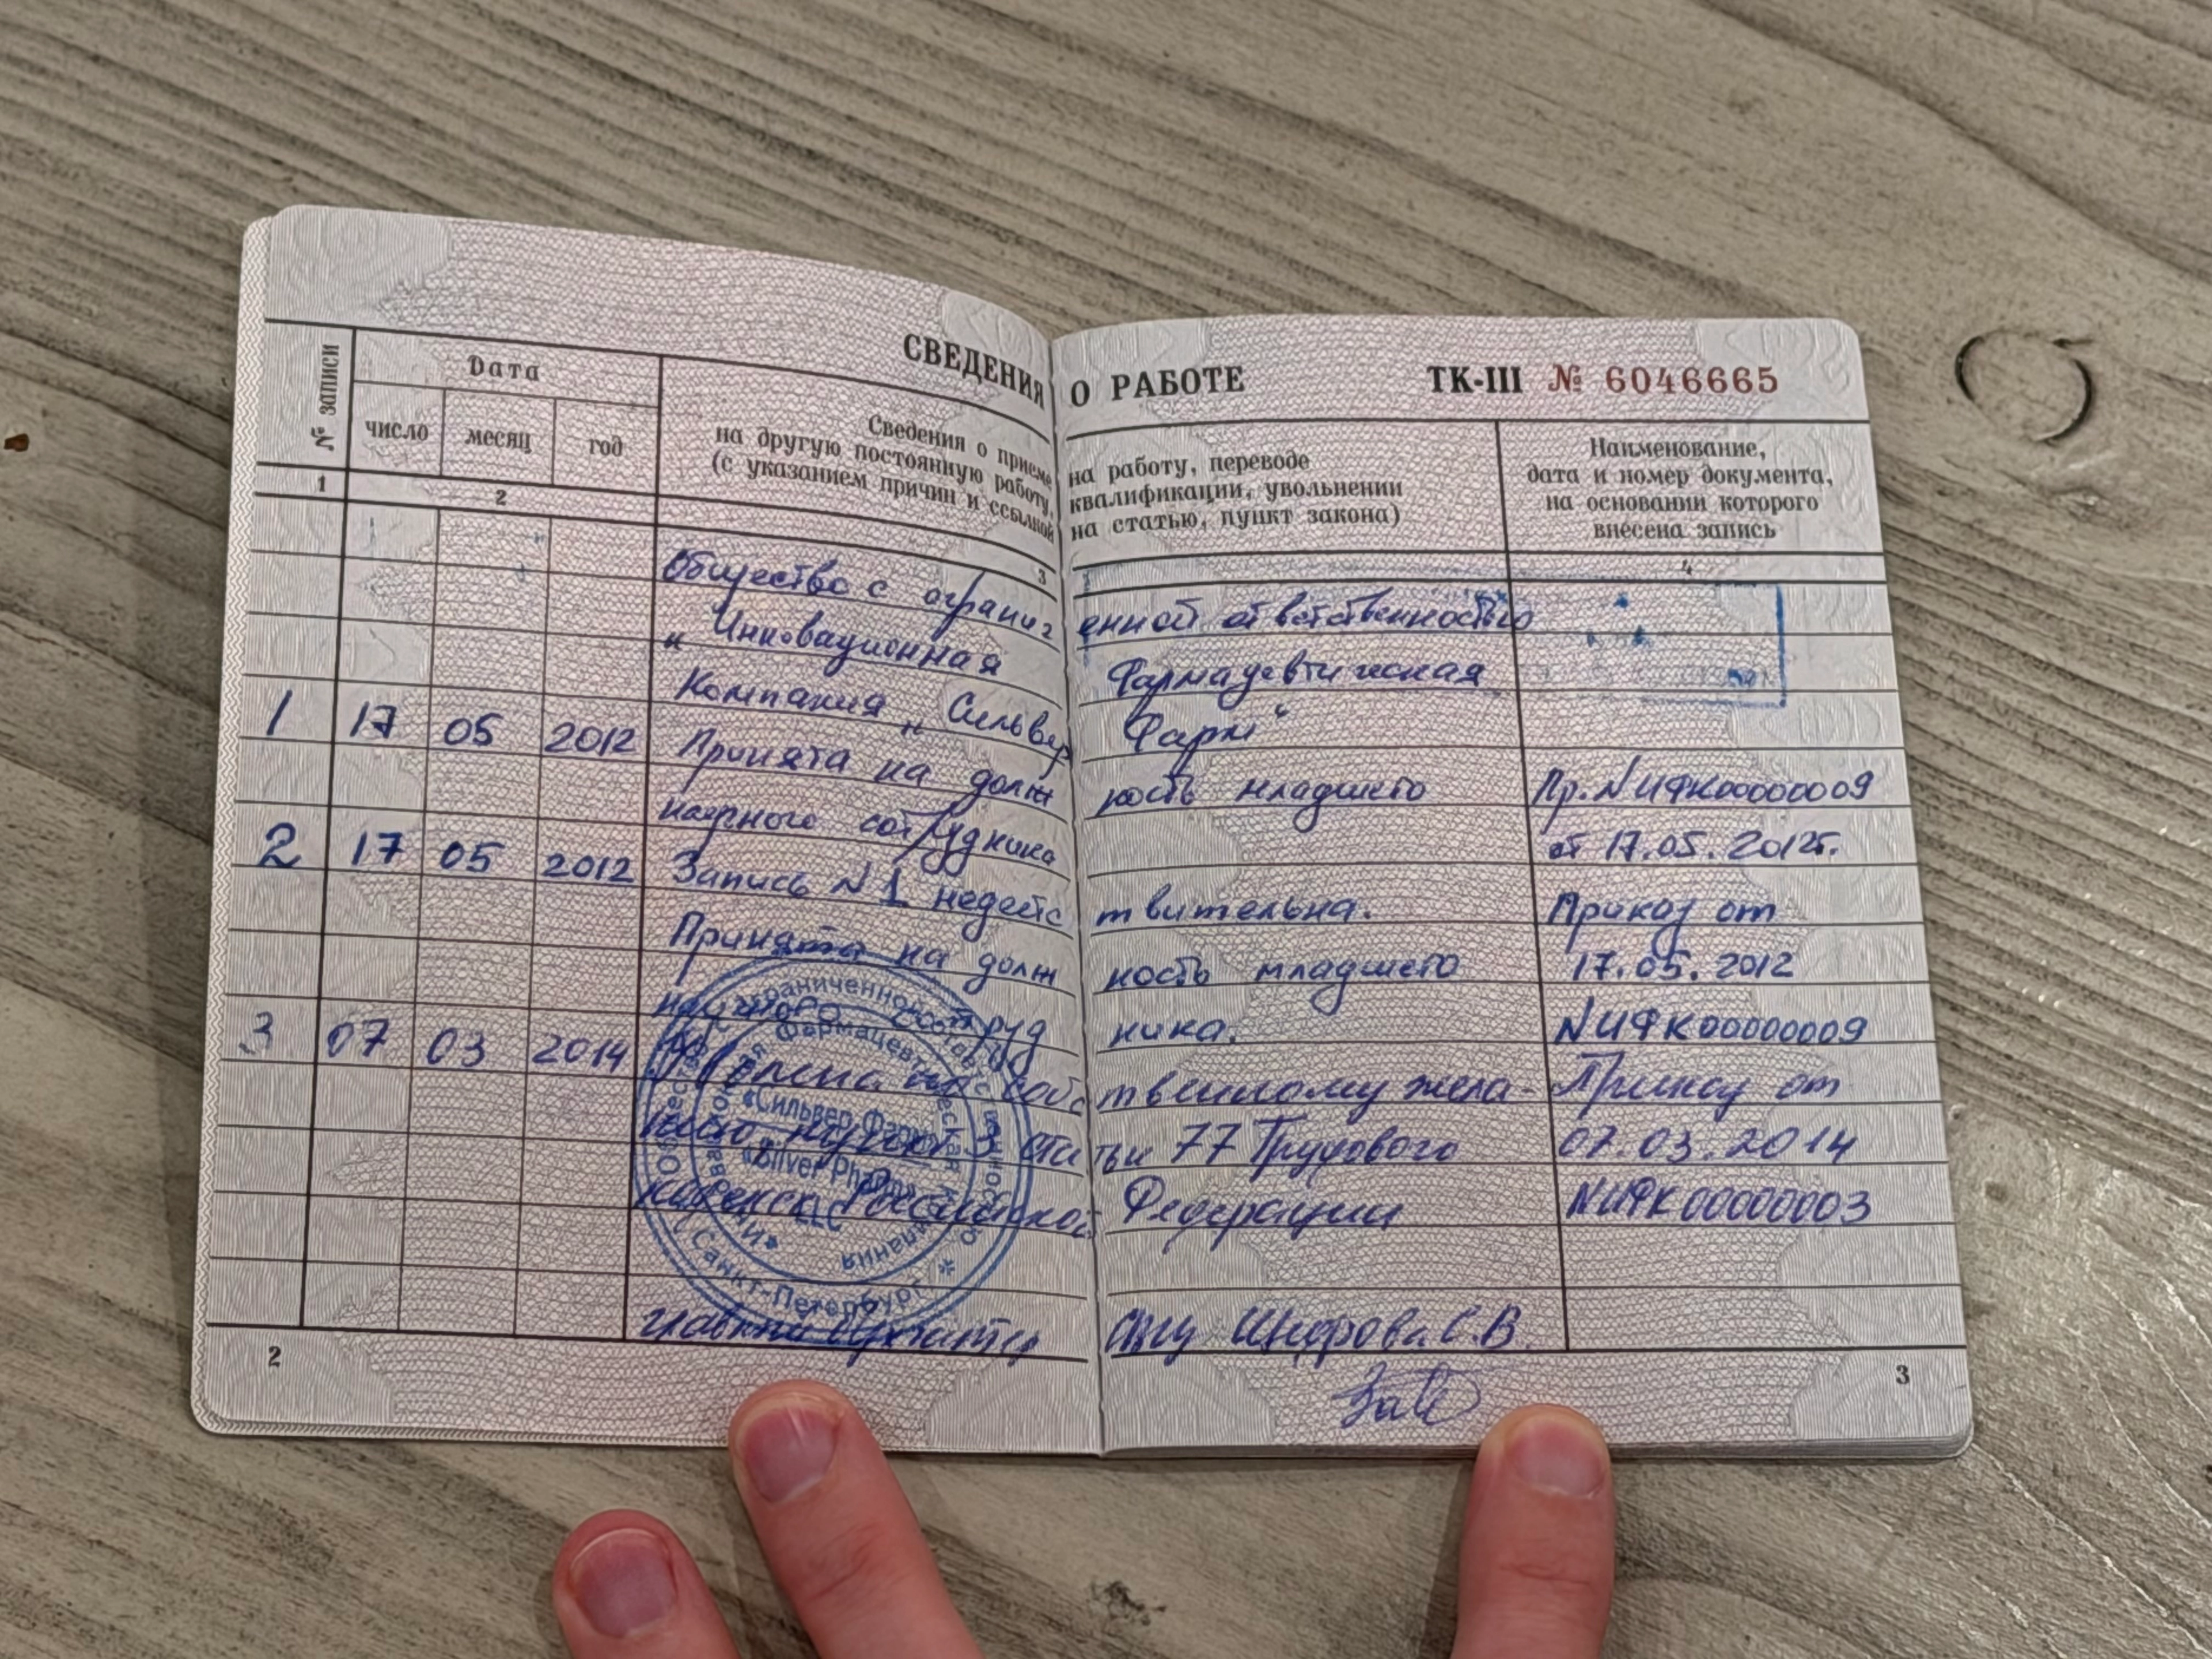 СВЕДЕНИЯ О РАБОТЕ ТК-III № 6046665
№ записи
Дата
число месяц год
Сведения о приеме на работу, переводе
на другую постоянную работу, квалификации, увольнении
(с указанием причин и ссылкой на статью, пункт закона)
Наименование,
дата и номер документа,
на основании которого
внесена запись
1 2 3 4
Общество с ограниченной ответственностью
"Инновационная Фармацевтическая
Компания "Сильвер Фарм"
1 17 05 2012 Принята на должность младшего Пр.NИФК00000009
научного сотрудника от 17.05.2012г.
2 17 05 2012 Запись N1 недействительна. Приказ от
Принята на должность младшего 17.05.2012
научного сотрудника. NИФК00000009
3 07 03 2014 Уволена по собственному жела- Приказ от
нию пункт 3 статьи 77 Трудового 07.03.2014
кодекса Российской Федерации NИФК00000003
«Сильвер Фарм»
«Silver Pharm»
LLC
Санкт-Петербург
главный бухгалтер С.В
2 3